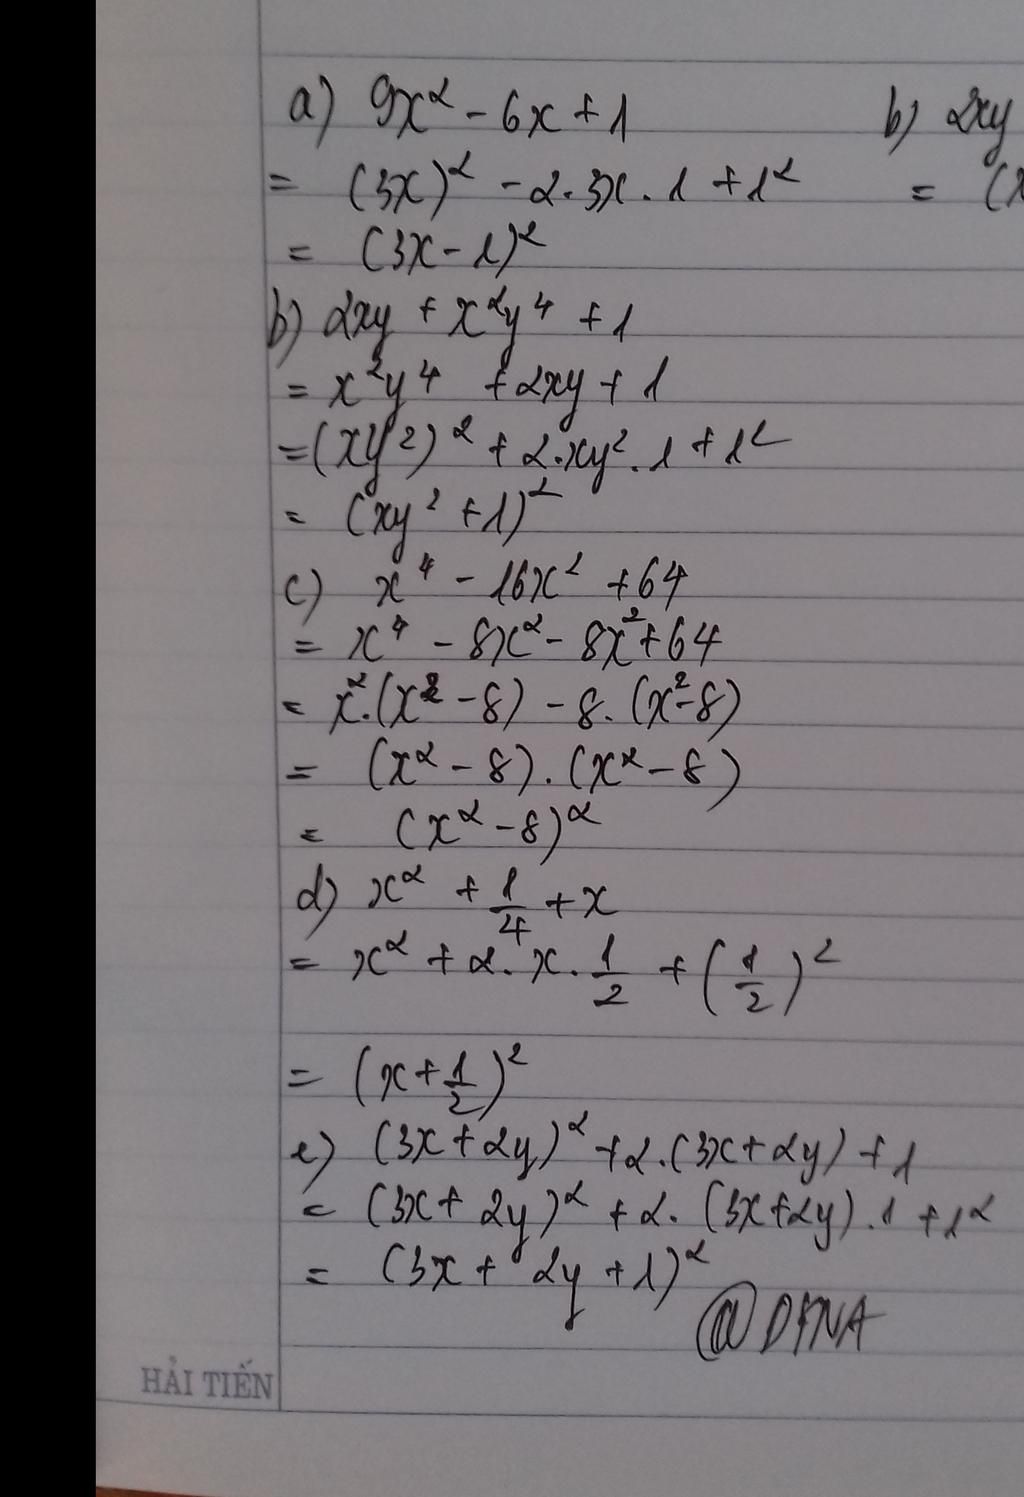 a) 9x² - 6x + 1
= (3x)² - 2.3x.1 + 1²
= (3x - 1)²
b) 2xy
= (x
b) 2xy + x²y⁴ + 1
= x²y⁴ + 2xy + 1
= (xy²)² + 2.xy².1 + 1²
= (xy² + 1)²
c) x⁴ - 16x² + 64
= x⁴ - 8x² - 8x² + 64
= x².(x² - 8) - 8.(x² - 8)
= (x² - 8).(x² - 8)
= (x² - 8)²
d) x² + 1/4 + x
= x² + 2.x.1/2 + (1/2)²
= (x + 1/2)²
e) (3x + 2y)² + 2.(3x + 2y) + 1
= (3x + 2y)² + 2.(3x + 2y).1 + 1²
= (3x + 2y + 1)²
HẢI TIẾN